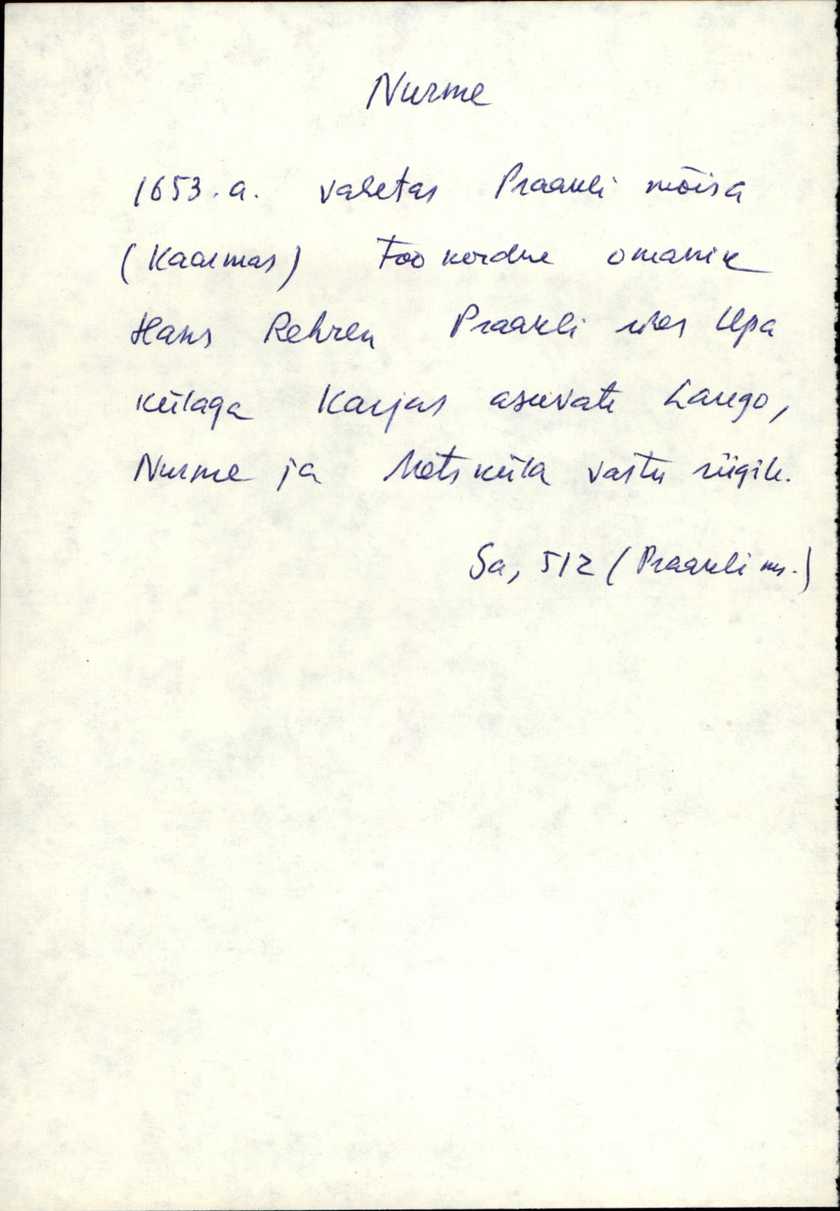 Nurme
1653.a. vahetas Praakli mõisa
(Kaarmas) tookordne omanik
Hans Rehren Praakli ühes Upa
külaga Karjas asuvate Laugo,
Nurme ja Metsküla vastu riigile.
Sa, 512 (Praakli ms.)